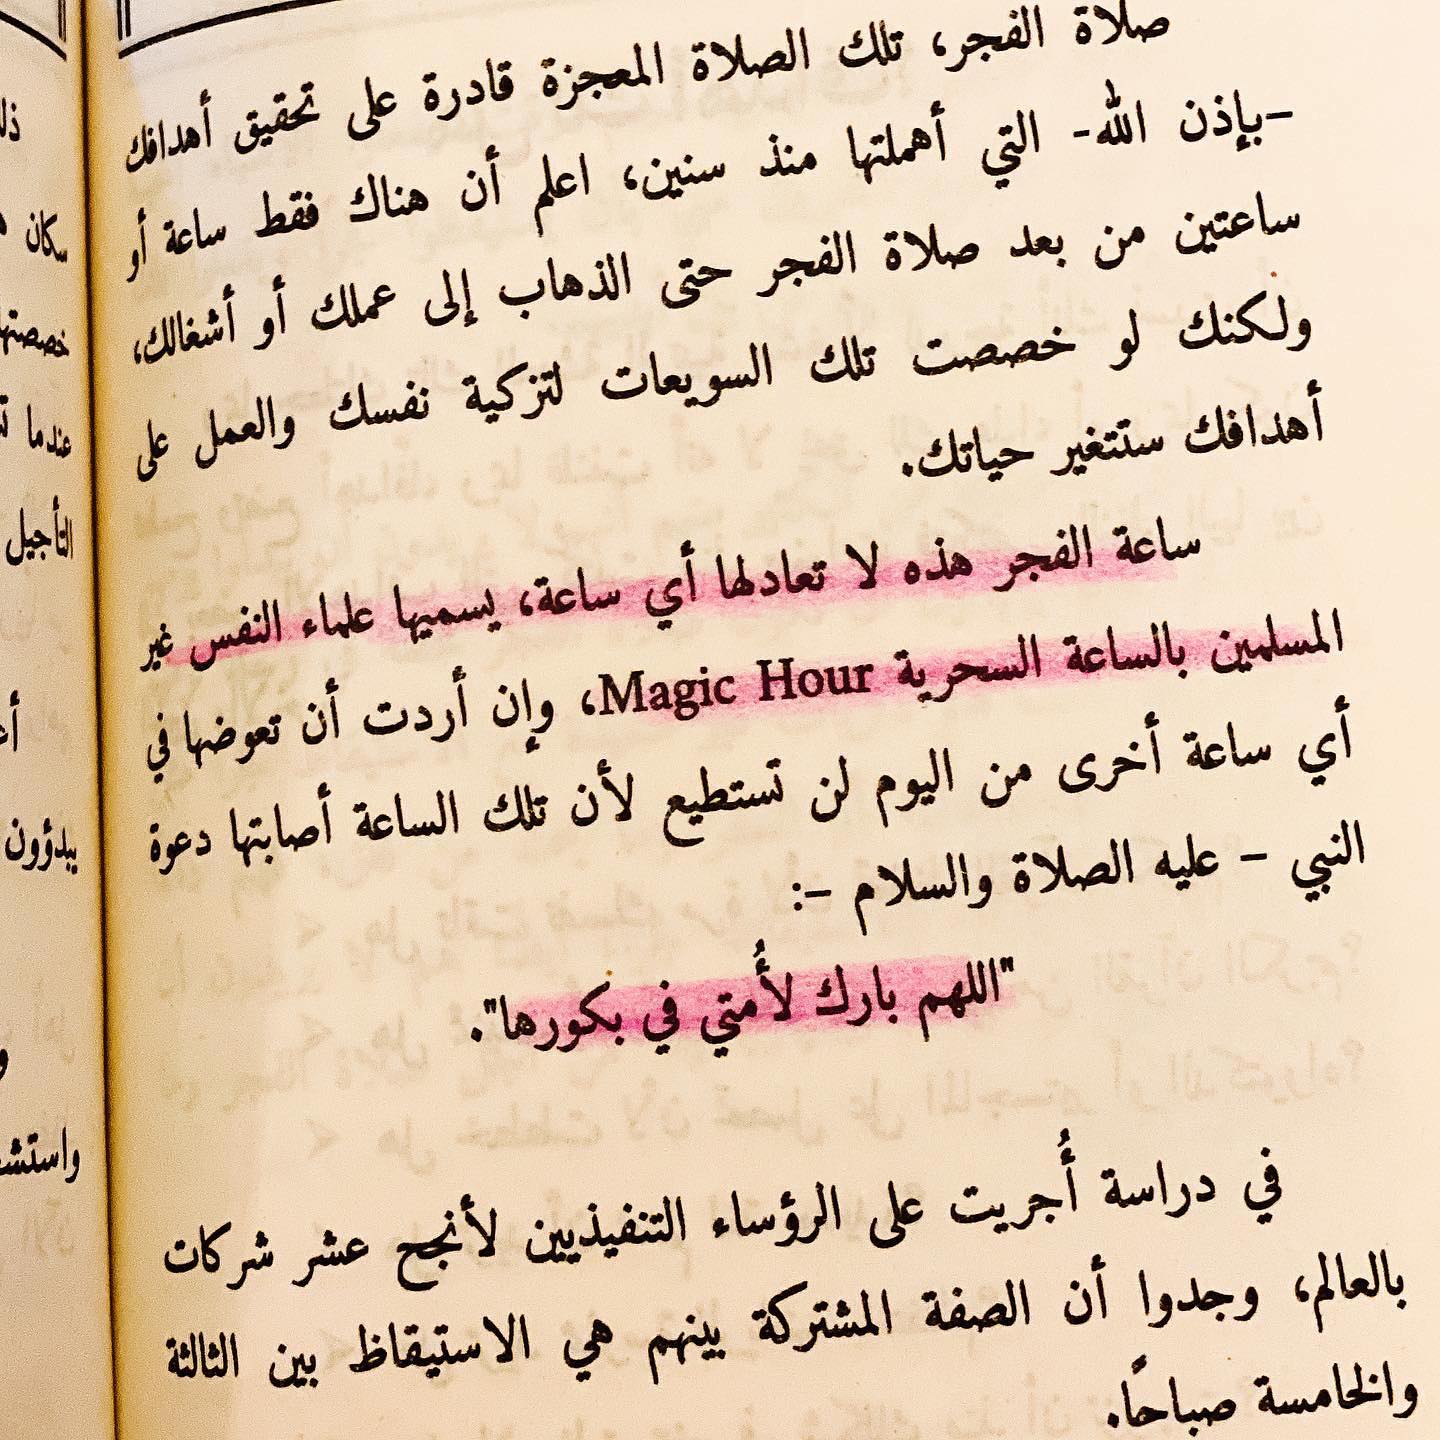 صلاة الفجر، تلك الصلاة المعجزة قادرة على تحقيق أهدافك
-بإذن الله- التي أهملتها منذ سنين، اعلم أن هناك فقط ساعة أو
ساعتين من بعد صلاة الفجر حتى الذهاب إلى عملك أو أشغالك،
ولكنك لو خصصت تلك السويعات لتزكية نفسك والعمل على
أهدافك ستتغير حياتك.
ساعة الفجر هذه لا تعادلها أي ساعة، يسميها علماء النفس غير
المسلمين بالساعة السحرية Magic Hour، وإن أردت أن تعوضها في
أي ساعة أخرى من اليوم لن تستطيع لأن تلك الساعة أصابتها دعوة
النبي – عليه الصلاة والسلام –:
"اللهم بارك لأُمتي في بكورها".
في دراسة أُجريت على الرؤساء التنفيذيين لأنجح عشر شركات
بالعالم، وجدوا أن الصفة المشتركة بينهم هي الاستيقاظ بين الثالثة
والخامسة صباحًا.
سكان
خصصتها
عندما
التأجيل
يبدؤون